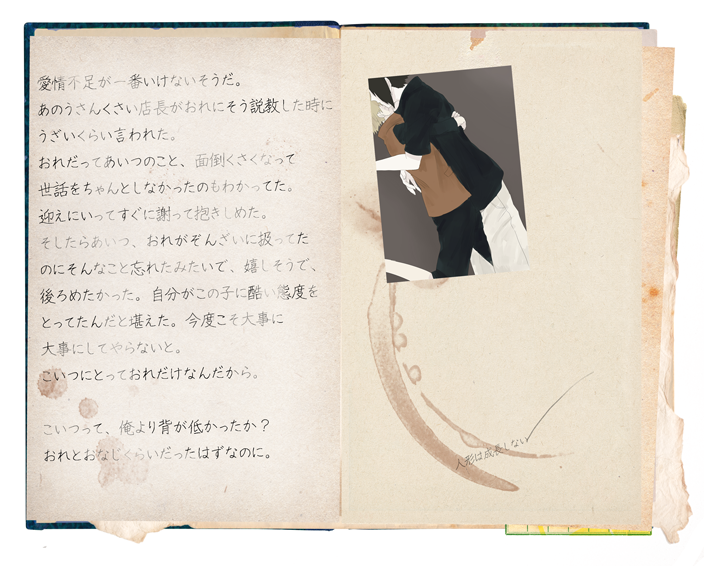 愛情不足が一番いけないそうだ。
あのうさんくさい店長がおれにそう説教した時に
うざいくらい言われた。
おれだってあいつのこと、面倒くさくなって
世話をちゃんとしなかったのもわかってた。
迎えにいってすぐに謝って抱きしめた。
そしたらあいつ、おれがぞんざいに扱ってた
のにそんなこと忘れたみたいで、嬉しそうで、
後ろめたかった。自分がこの子に酷い態度を
とってたんだと堪えた。今度こそ大事に
大事にしてやらないと。
こいつにとっておれだけなんだから。
こいつって、俺より背が低かったか？
おれとおなじくらいだったはずなのに。
人形は成長しない